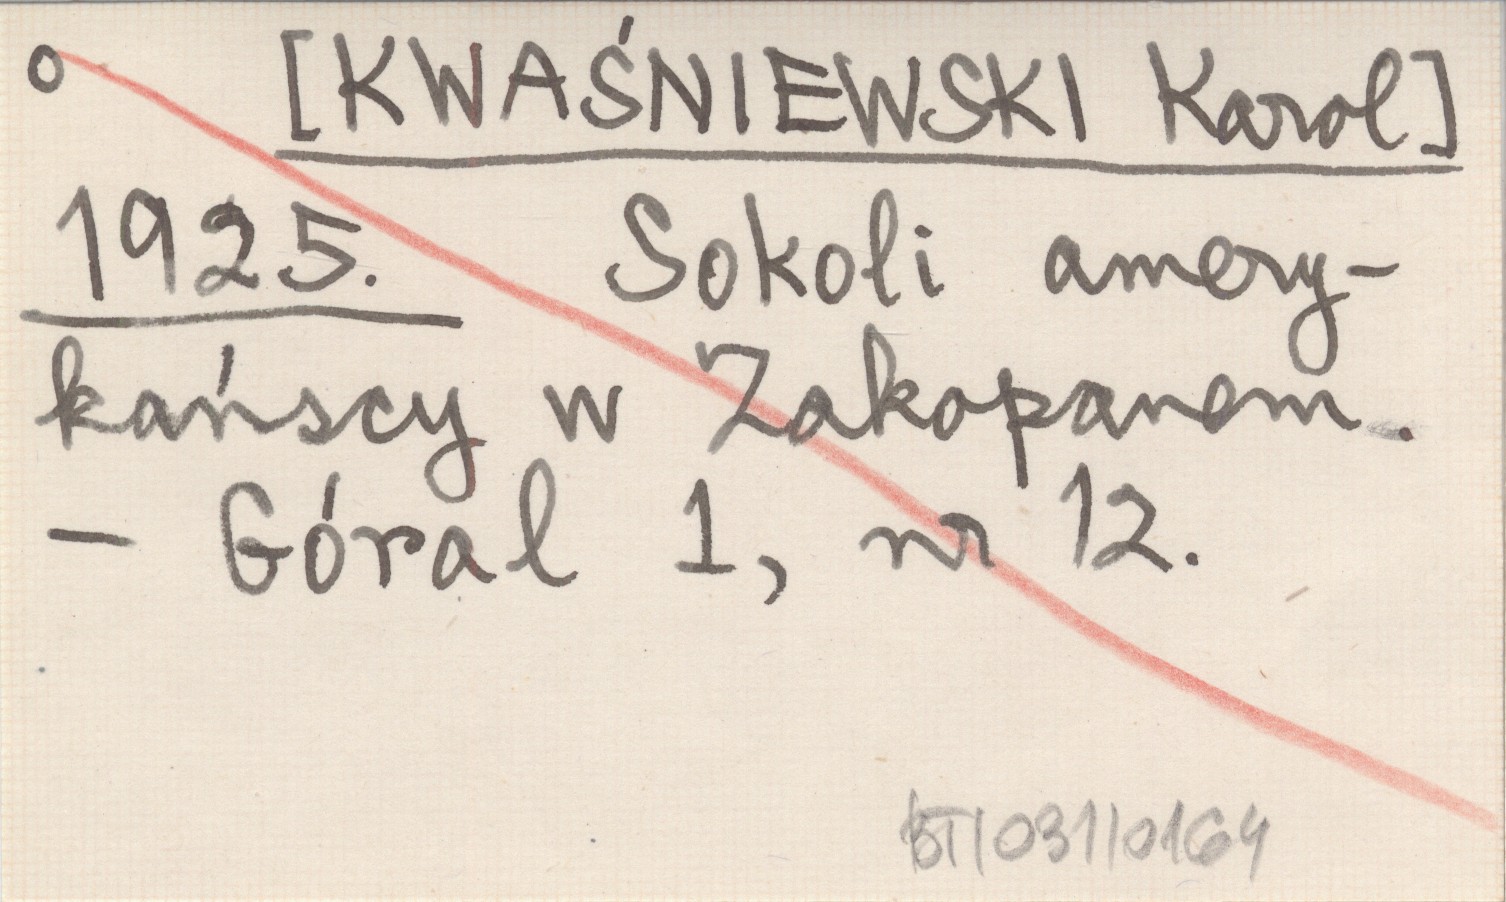 o [KWAŚNIEWSKI Karol]
1925. Sokoli amery-
kańscy w Zakopanem.
- Góral 1, nr 12.
BT/031/0164